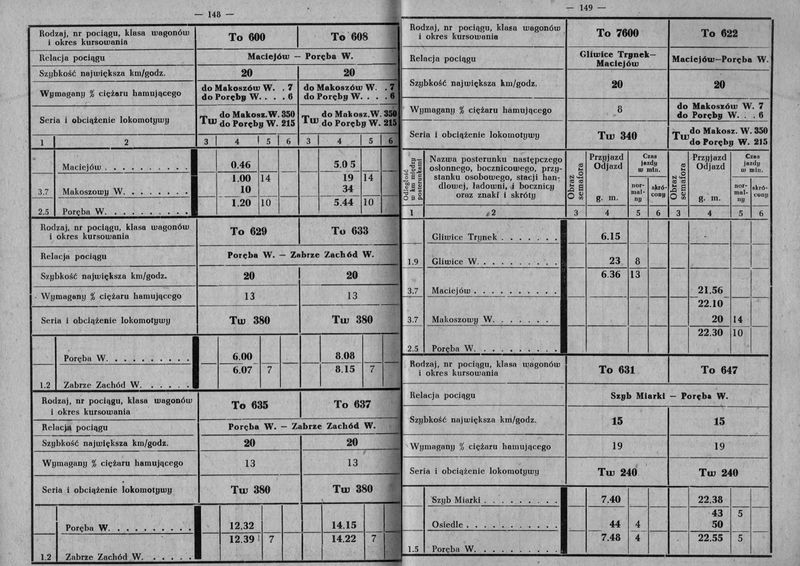 — 148 —
Rodzaj, nr pociągu, klasa wagonów i okres kursowania To 600 To 608
Relacja pociągu Maciejów — Poręba W.
Szybkość największa km/godz. 20 20
Wymagany % ciężaru hamującego do Makoszów W. . 7 do Makoszów W. . 7
do Poręby W. . . . 6 do Poręby W. . . . 6
Seria i obciążenie lokomotywy Tw do Makosz.W. 350 Tw do Makosz.W. 350
do Poręby W. 215 do Poręby W. 215
1 2 3 4 5 6 3 4 5 6
Maciejów 0.46 5.05
1.00 14 19 14
3.7 Makoszowy W. 10 34
1.20 10 5.44 10
2.5 Poręba W.
Rodzaj, nr pociągu, klasa wagonów i okres kursowania To 629 To 633
Relacja pociągu Poręba W. — Zabrze Zachód W.
Szybkość największa km/godz. 20 20
Wymagany % ciężaru hamującego 13 13
Seria i obciążenie lokomotywy Tw 380 Tw 380
Poręba W. 6.00 8.08
6.07 7 8.15 7
1.2 Zabrze Zachód W.
Rodzaj, nr pociągu, klasa wagonów i okres kursowania To 635 To 637
Relacja pociągu Poręba W. — Zabrze Zachód W.
Szybkość największa km/godz. 20 20
Wymagany % ciężaru hamującego 13 13
Seria i obciążenie lokomotywy Tw 380 Tw 380
Poręba W. 12.32 14.15
12.39 7 14.22 7
1.2 Zabrze Zachód W.
— 149 —
Rodzaj, nr pociągu, klasa wagonów i okres kursowania To 7600 To 622
Relacja pociągu Gliwice Trynek— Maciejów Maciejów—Poręba W.
Szybkość największa km/godz. 20 20
Wymagany % ciężaru hamującego 8 do Makoszów W. 7
do Poręby W. . . 6
Seria i obciążenie lokomotywy Tw 340 Tw do Makosz. W. 350
do Poręby W. 215
Odległość w km między posterunkami
Nazwa posterunku następczego
osłonnego, bocznicowego, przy-
stanku osobowego, stacji han-
dlowej, ładowni, i bocznicy
oraz znaki i skróty
Obraz semafora Przyjazd Odjazd g. m. Czas jazdy w min. nor-mal-ny skró-cony
Obraz semafora Przyjazd Odjazd g. m. Czas jazdy w min. nor-mal-ny skró-cony
1 2 3 4 5 6 3 4 5 6
Gliwice Trynek 6.15
1.9 Gliwice W. 23 8
6.36 13
3.7 Maciejów 21.56
22.10
3.7 Makoszowy W. 20 14
22.30 10
2.5 Poręba W.
Rodzaj, nr pociągu, klasa wagonów i okres kursowania To 631 To 647
Relacja pociągu Szyb Miarki — Poręba W.
Szybkość największa km/godz. 15 15
Wymagany % ciężaru hamującego 19 19
Seria i obciążenie lokomotywy Tw 240 Tw 240
Szyb Miarki 7.40 22.38
43 5
Osiedle 44 4 50
7.48 4 22.55 5
1.5 Poręba W.